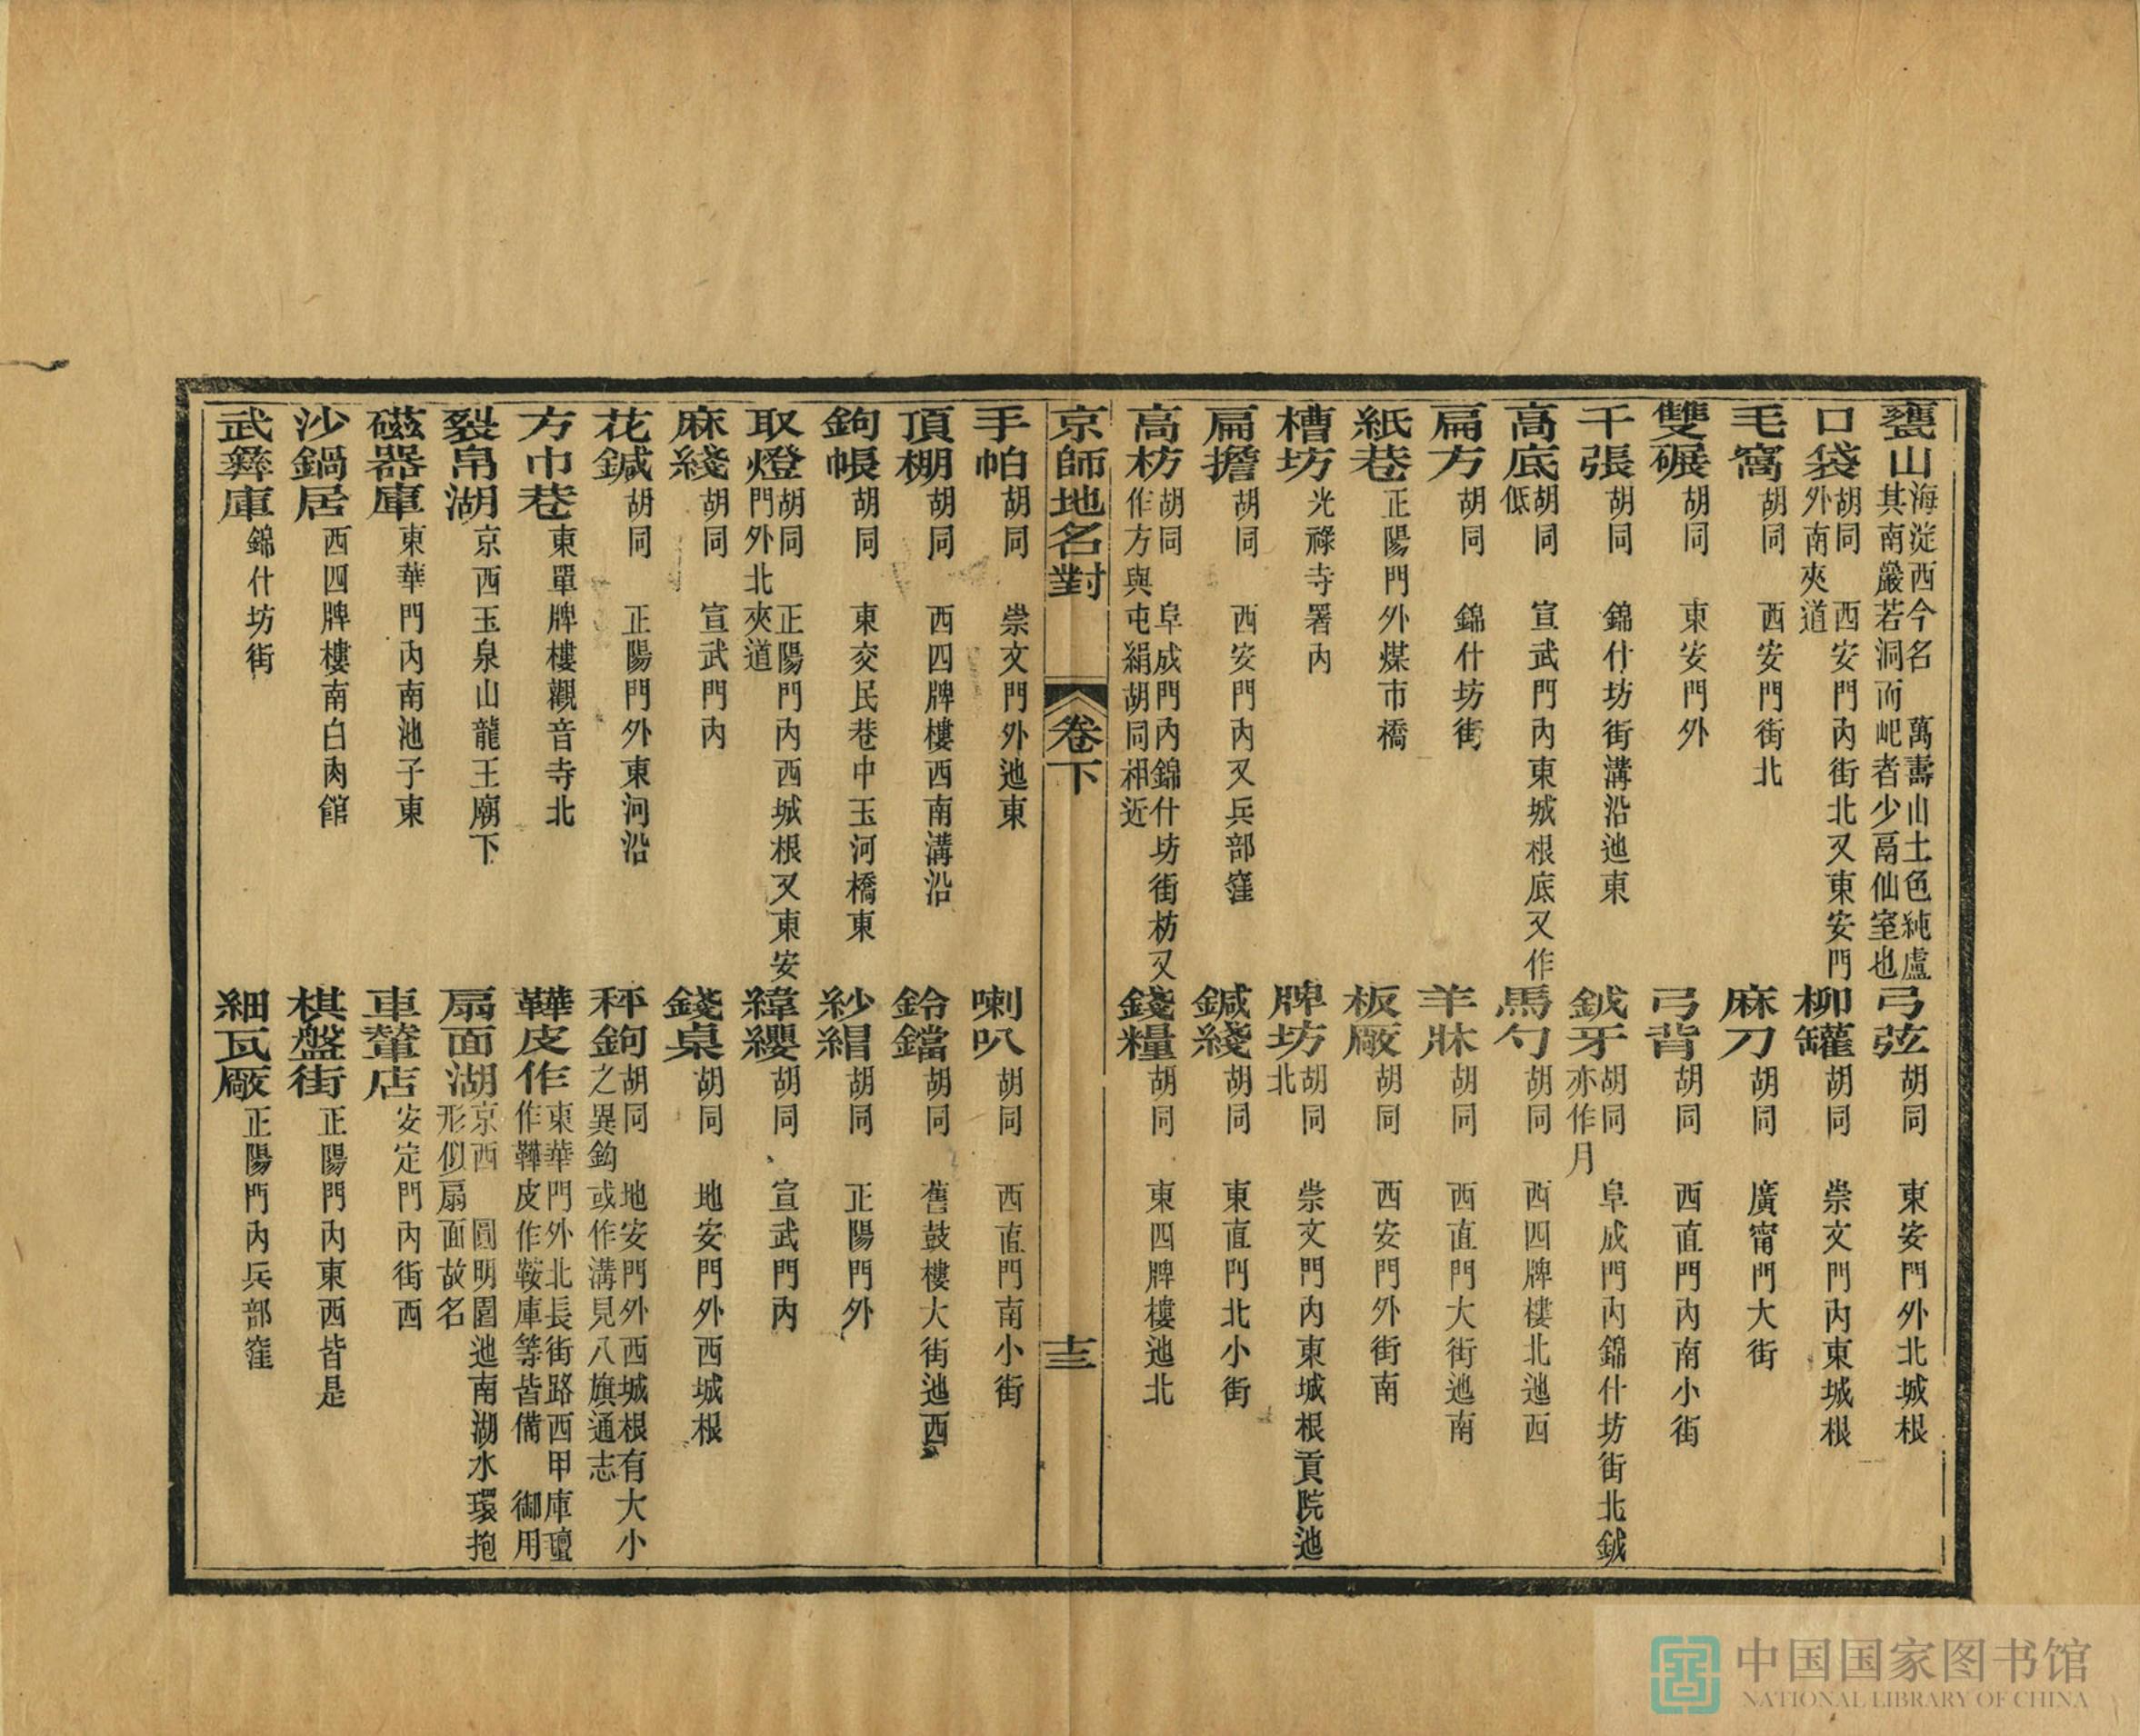 甕山海淀西今名 萬壽山土色純盧其南巖若洞而屺者少鬲仙室也 弓弦胡同 東安門外北城根
口袋胡同 西安門內街北又東安門外南夾道 柳罐胡同 崇文門內東城根
毛窩胡同 西安門街北 麻刀胡同 廣甯門大街
雙碾胡同 東安門外 弓背胡同 西直門內南小街
千張胡同 錦什坊街溝沿迤東 鉞牙胡同 阜成門內錦什坊街北鉞亦作月
高底胡同 宣武門內東城根底又作低 馬勺胡同 西四牌樓北迤西
扁方胡同 錦什坊街 羊牀胡同 西直門大街迤南
紙巷正陽門外煤市橋 板厰胡同 西安門外街南
槽坊光祿寺署內 牌坊胡同 崇文門內東城根貢院迤北
扁擔胡同 西安門內又兵部窪 鍼綫胡同 東直門北小街
高枋胡同 阜成門內錦什坊街枋又作方與屯絹胡同相近 錢糧胡同 東四牌樓迤北
京師地名對 卷下 十三
手帕胡同 崇文門外迤東 喇叭胡同 西直門南小街
頂棚胡同 西四牌樓西南溝沿 鈴鐺胡同 舊鼓樓大街迤西
鉤帳胡同 東交民巷中玉河橋東 紗絹胡同 正陽門外
取燈胡同 正陽門內西城根又東安門外北夾道 緯纓胡同 宣武門內
麻綫胡同 宣武門內 錢桌胡同 地安門外西城根
花鍼胡同 正陽門外東河沿 秤鉤胡同 地安門外西城根有大小之異鉤或作溝見八旗通志
方巾巷東單牌樓觀音寺北 鞾皮作東華門外北長街路西甲庫氊作鞾皮作鞍庫等皆備 御用
裂帛湖京西玉泉山龍王廟下 扇面湖京西 圓明園迤南湖水環抱形似扇面故名
磁器庫東華門內南池子東 車輦店安定門內街西
沙鍋居西四牌樓南白肉館 棋盤街正陽門內東西皆是
武彝庫錦什坊街 細瓦厰正陽門內兵部窪
中国国家图书馆
NATIONAL LIBRARY OF CHINA